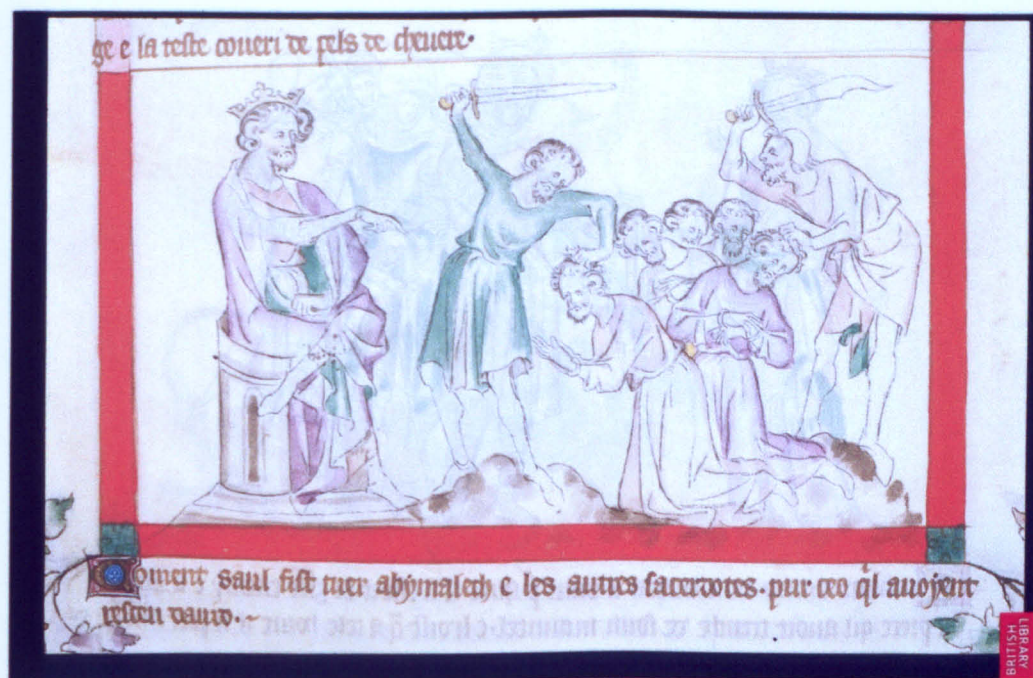 ge e la teste coveri de pels de chevere.
Coment saul fist tuer abymalech e les autres sacerdotes. pur ceo ql avoyent
resceu david.
BRITISH
LIBRARY